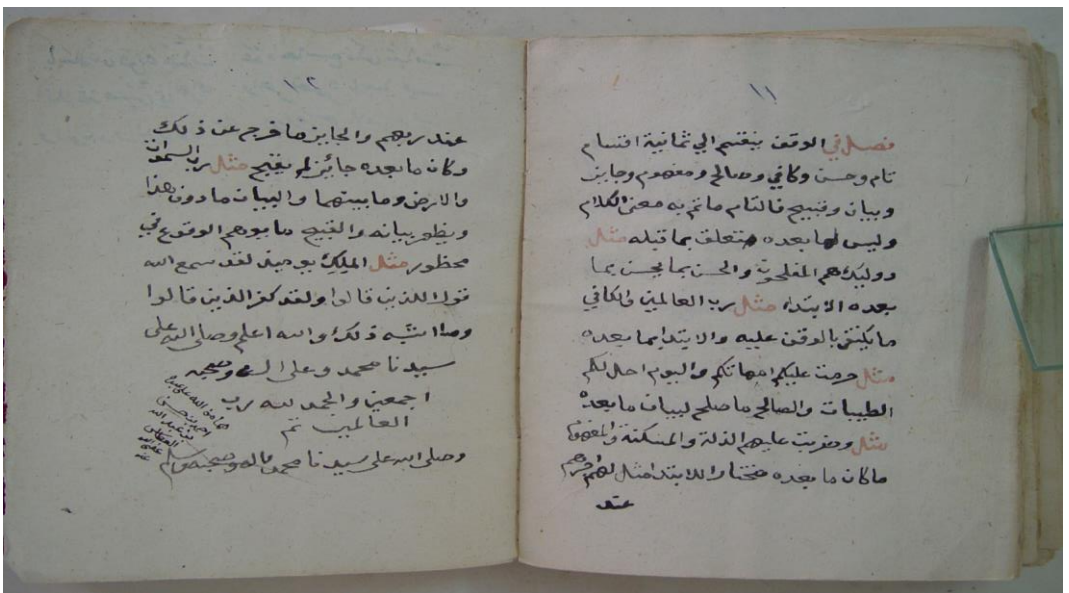 ١١
فصل في الوقف ينقسم الي ثمانية اقسام
تام وحسن وكافي وصالح ومفهوم وجايز
وبيان وقبيح فالتام ماتم به معني الكلام
وليس لما بعده متعلق بما قبله مثل
اوليك هم المفلحون والحسن بما يحسن بما
بعده الابتداء مثل رب العالمين والكافي
ما يكتفي بالوقف عليه والابتدا بما بعده
مثل حرمت عليكم امهاتكم واليوم احل لكم
الطيبات والصالح ما صلح لبيان ما بعده
مثل وضربت عليهم الذلة والمسكنة والمفهوم
ماكان ما بعده مختارا للابتدا مثل لهم اجرهم
عند
١٢
عند ربهم والجايز ما خرج عن ذلك
وكان ما بعده جائز لم يقبح مثل رب السموات
والارض وما بينهما والبيان ما دون هذا
ويظهر بيانه والقبيح ما يوهم الوقوع في
محظور مثل الملك يوميذ لقد سمع الله
قول الذين قالوا ولقد كفر الذين قالوا
وما اشبه ذلك والله اعلم وصلى الله على
سيدنا محمد وعلى اله وصحبه
اجمعين والحمد لله رب
العالمين تم
وصلى الله على سيدنا محمد واله وصحبه وسلم